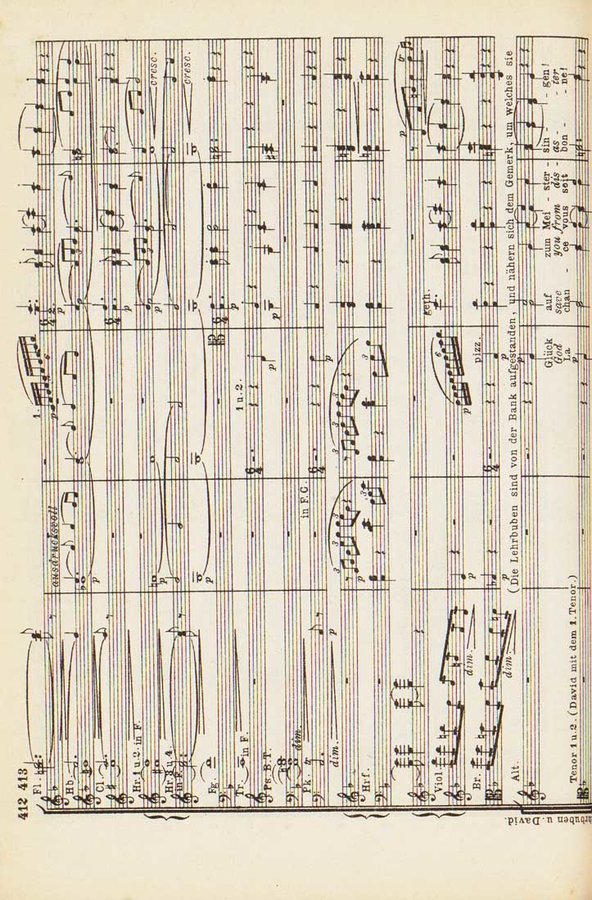 412 413
Fl.
Hb.
Cl.
Hr. 1 u. 2. in F.
Hr. 3 u. 4. in F.
Fg.
Tr. in F.
Ps. B. T.
Pk.
Hrf.
Viol.
Br.
Alt.
Tenor 1 u. 2. (David mit dem 1. Tenor.)
dim.
dim.
dim.
dim.
ausdrucksvoll
in F. C.
1.
1 u. 2.
pizz.
geth.
cresc.
cresc.
(Die Lehrbuben sind von der Bank aufgestanden, und nähern sich dem Gemerk, um welches sie
Glück auf zum Mei - ster - sin - gen!
God save you from dis - as - ter
La chan - ce vous soit bon - ne!
rbuben u. David.